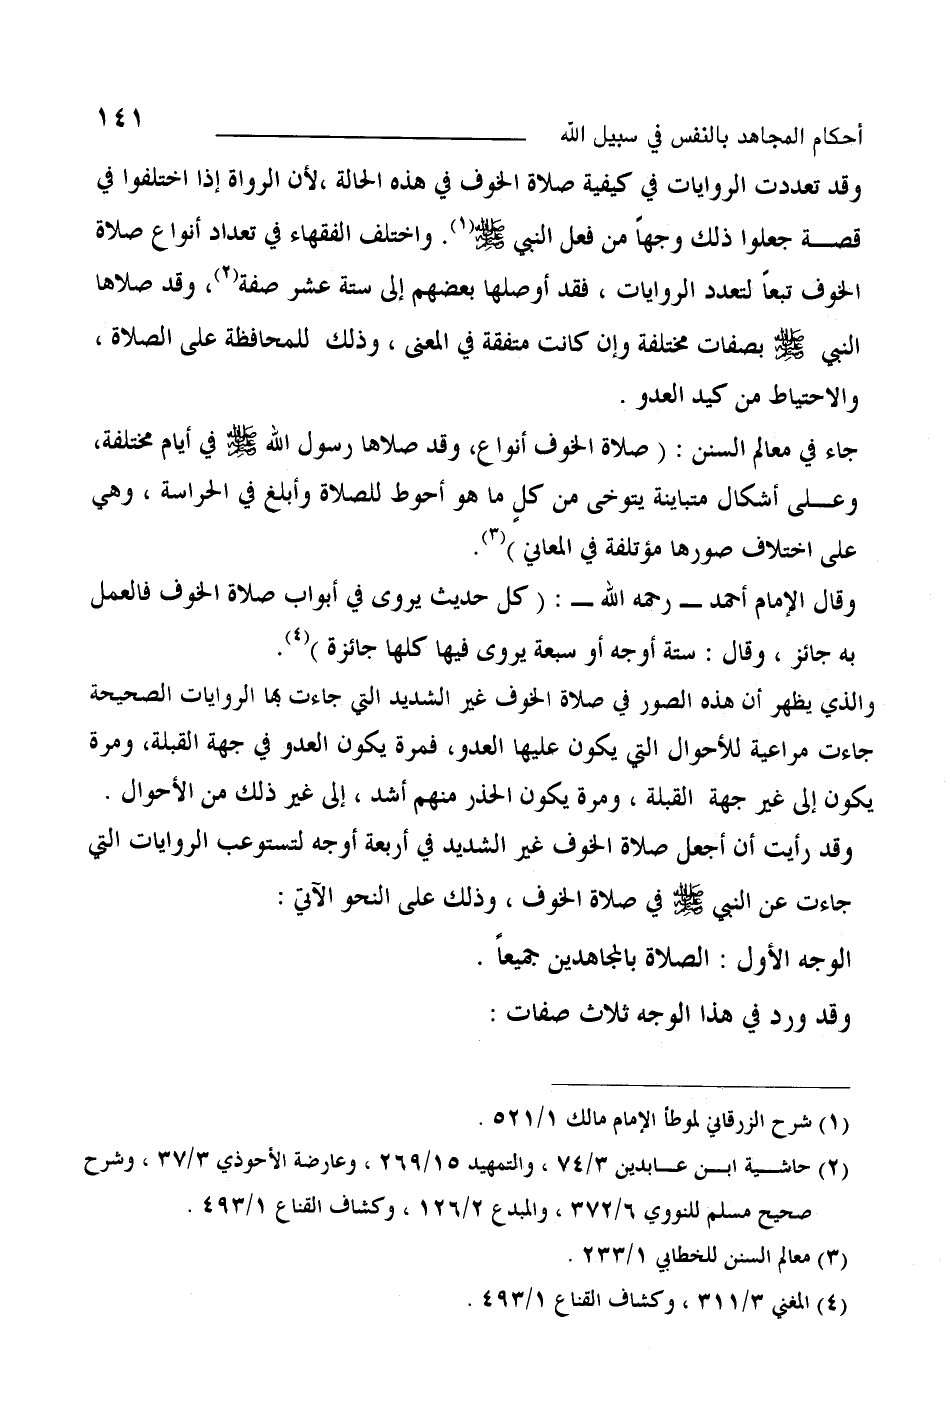 أحكام المجاهد بالنفس في سبيل الله ١٤١
وقد تعددت الروايات في كيفية صلاة الخوف في هذه الحالة ،لأن الرواة إذا اختلفوا في
قصـــة جعلوا ذلك وجهاً من فعل النبي ﷺ(١). واختلف الفقهاء في تعداد أنواع صلاة
الخوف تبعاً لتعدد الروايات ، فقد أوصلها بعضهم إلى ستة عشر صفة(٢)، وقد صلاها
النبي ﷺ بصفات مختلفة وإن كانت متفقة في المعنى ، وذلك للمحافظة على الصلاة ،
والاحتياط من كيد العدو .
جاء في معالم السنن : ( صلاة الخوف أنواع، وقد صلاها رسول الله ﷺ في أيام مختلفة،
وعـــلى أشكال متباينة يتوخى من كلٍ ما هو أحوط للصلاة وأبلغ في الحراسة ، وهي
على اختلاف صورها مؤتلفة في المعاني )(٣).
وقال الإمام أحمد ـ رحمه الله ـ : ( كل حديث يروى في أبواب صلاة الخوف فالعمل
به جائز ، وقال : ستة أوجه أو سبعة يروى فيها كلها جائزة )(٤).
والذي يظهر أن هذه الصور في صلاة الخوف غير الشديد التي جاءت بها الروايات الصحيحة
جاءت مراعية للأحوال التي يكون عليها العدو، فمرة يكون العدو في جهة القبلة، ومرة
يكون إلى غير جهة القبلة ، ومرة يكون الحذر منهم أشد ، إلى غير ذلك من الأحوال .
وقد رأيت أن أجعل صلاة الخوف غير الشديد في أربعة أوجه لتستوعب الروايات التي
جاءت عن النبي ﷺ في صلاة الخوف ، وذلك على النحو الآتي :
الوجه الأول : الصلاة بالمجاهدين جميعاً .
وقد ورد في هذا الوجه ثلاث صفات :
(١) شرح الزرقاني لموطأ الإمام مالك ٥٢١/١ .
(٢) حاشـــية ابـــن عـــابدين ٧٤/٣ ، والتمهيد ٢٦٩/١٥ ، وعارضة الأحوذي ٣٧/٣ ، وشرح
صحيح مسلم للنووي ٣٧٢/٦ ، والمبدع ١٢٦/٢ ، وكشاف القناع ٤٩٣/١ .
(٣) معالم السنن للخطابي ٢٣٣/١ .
(٤) المغني ٣١١/٣ ، وكشاف القناع ٤٩٣/١ .